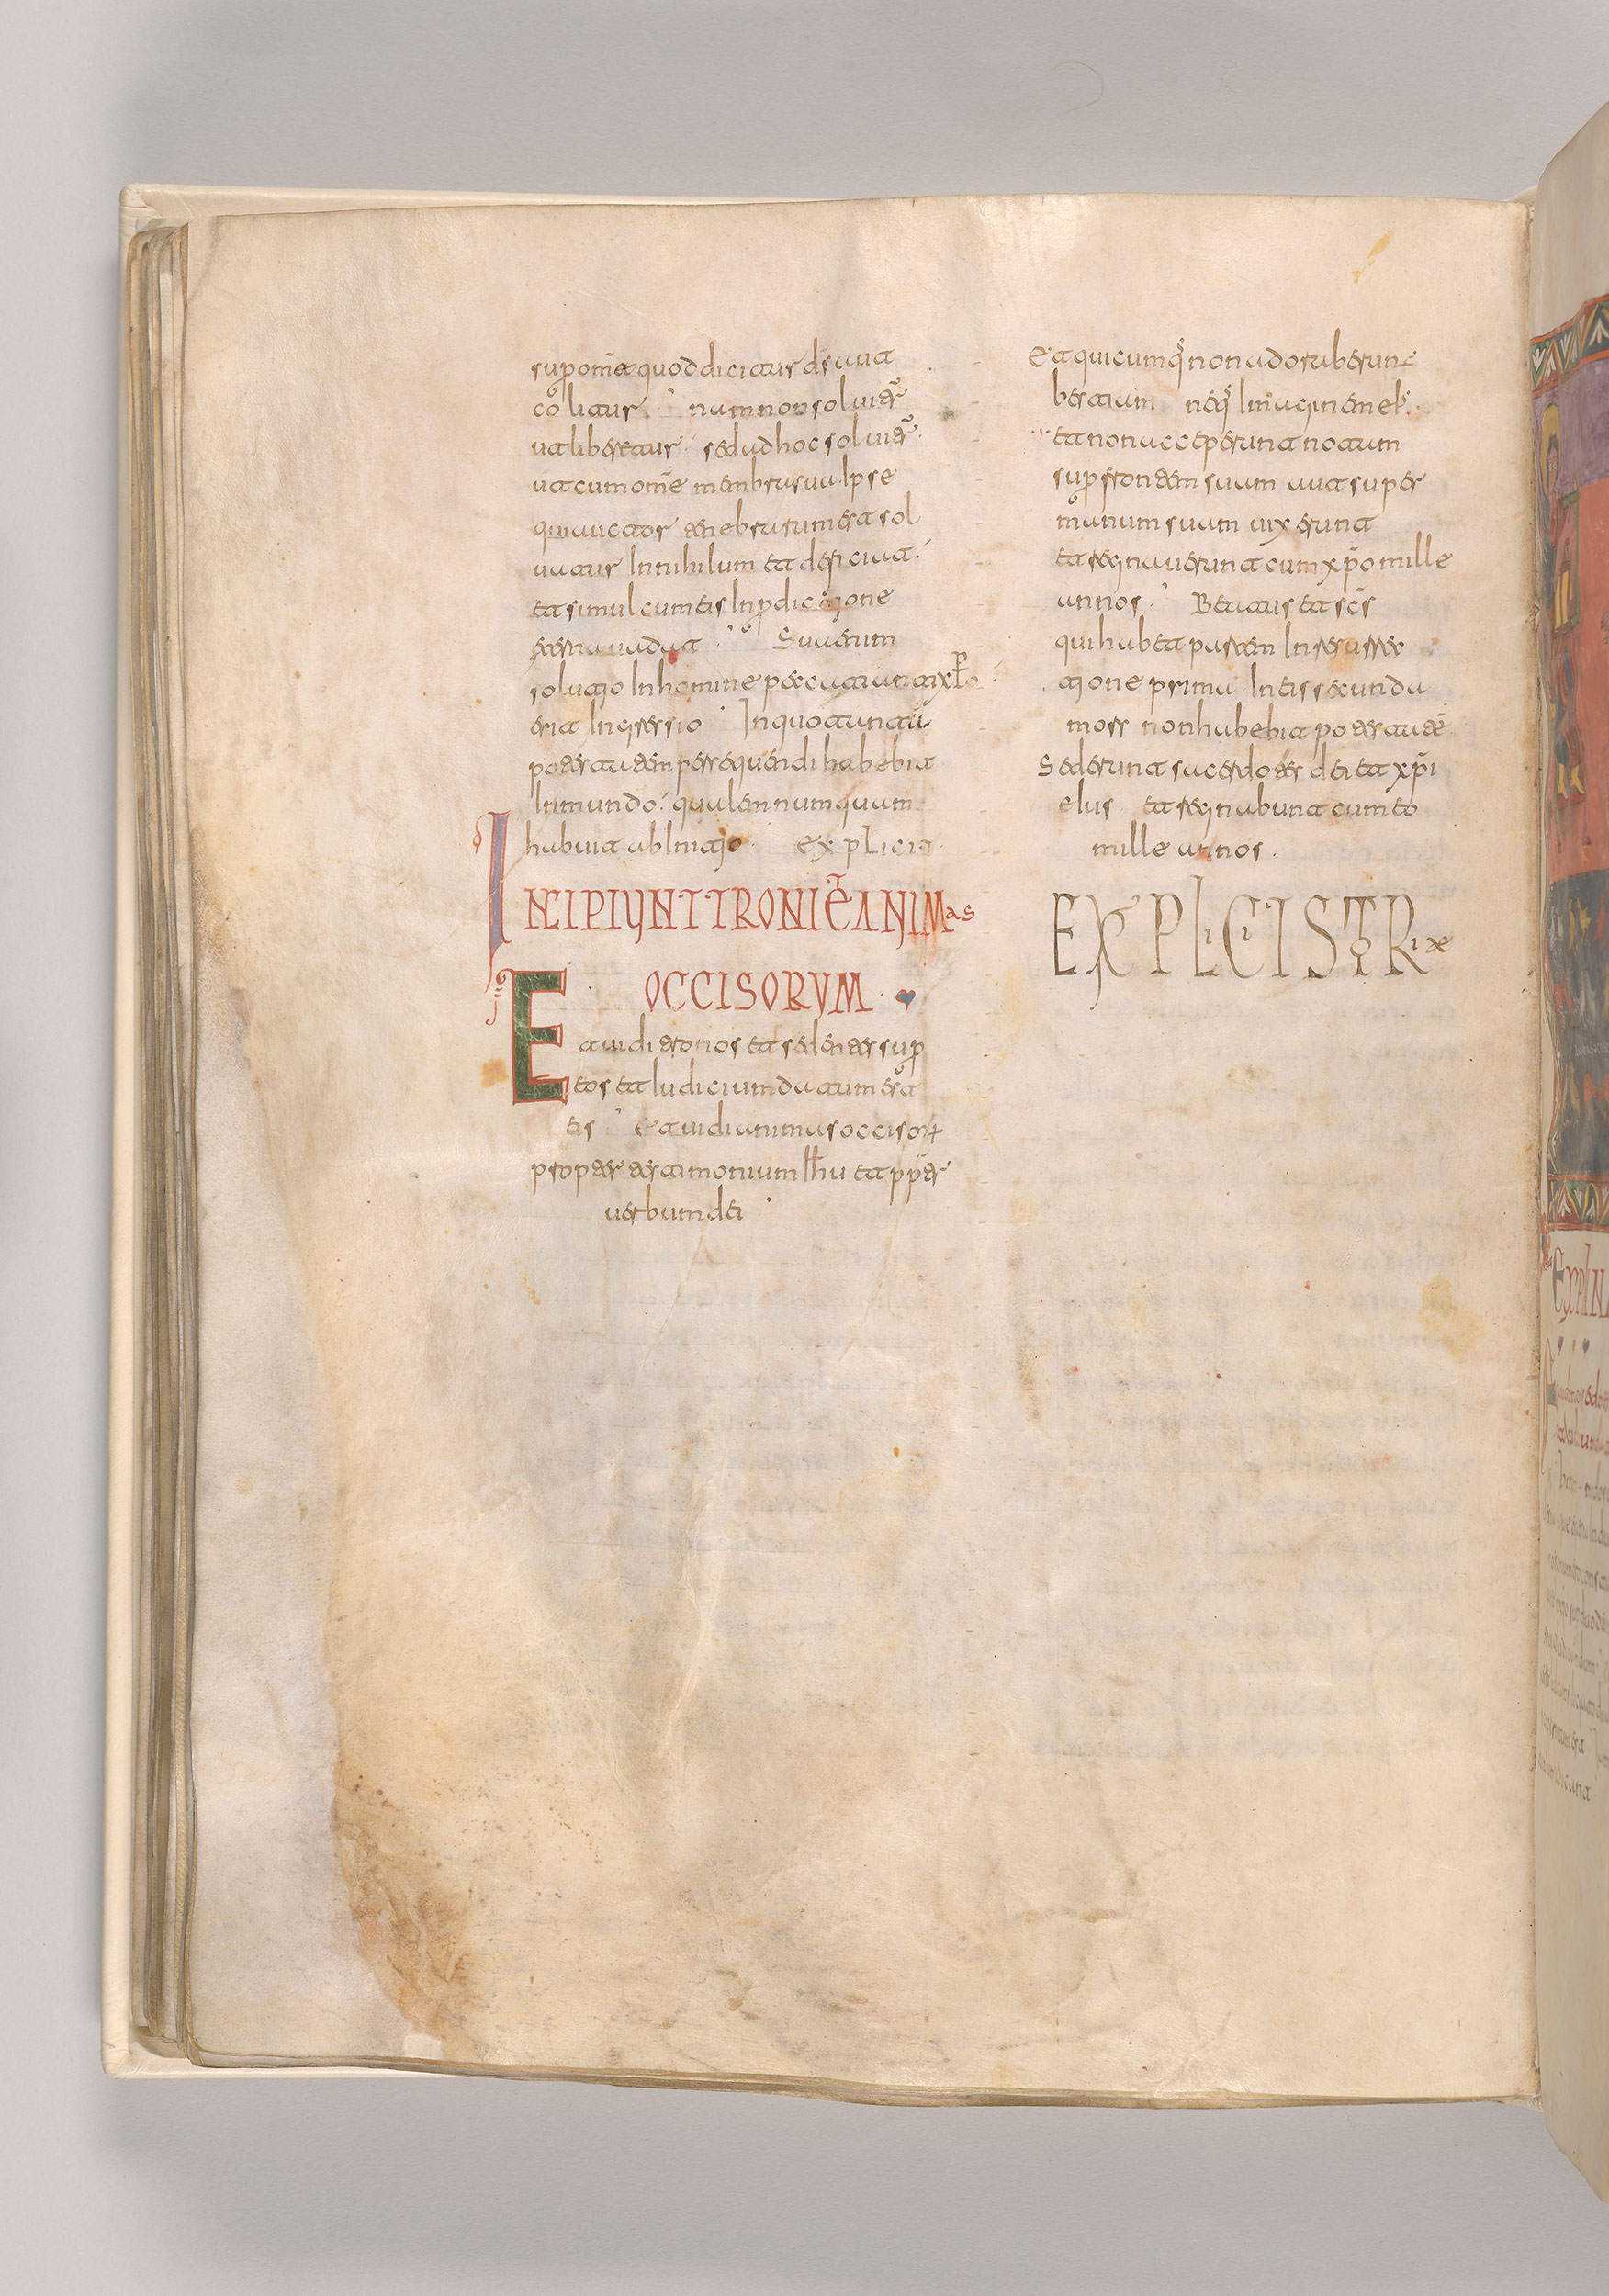 sup omne quod dicitur ds aut
colitur. num non solvitur
ut liberetur. sed ad hoc solvitur
ut cum omne membra sua. Ipse
qui auctor tenebrarum est sol
vatur In nihilum et deficiat.
et simul cum eis In perditione
eterna vadat. Suarum
solutio In homine
erit Ingressio In quo tantam
potestatem persequendi habebit
In mundo. qualem numquam
habuit ab Initio. explicit
INCIPIUNT TRONI ET ANIMAS
OCCISORUM
Et vidi tronos et sedentes sup
eos et Iudicium datum est
eis Et vidi animas occisor
propter testimonium Ihu et ppter
verbum dei
Et quicumq non adoraberunt
bestiam neq Imaginem els.
et non acceperunt notam
sup frontem suum aut super
manum suum vixerunt
et regnaverunt cum xpo mille
annos. Beatus et scs
qui habet partem In resurrec
tione prima In eis secunda
mors non habebit potestatem
Sed erunt sacerdotes dei et xpi
eIus et regnabunt cum eo
mille annos.
EXPLICI STORie